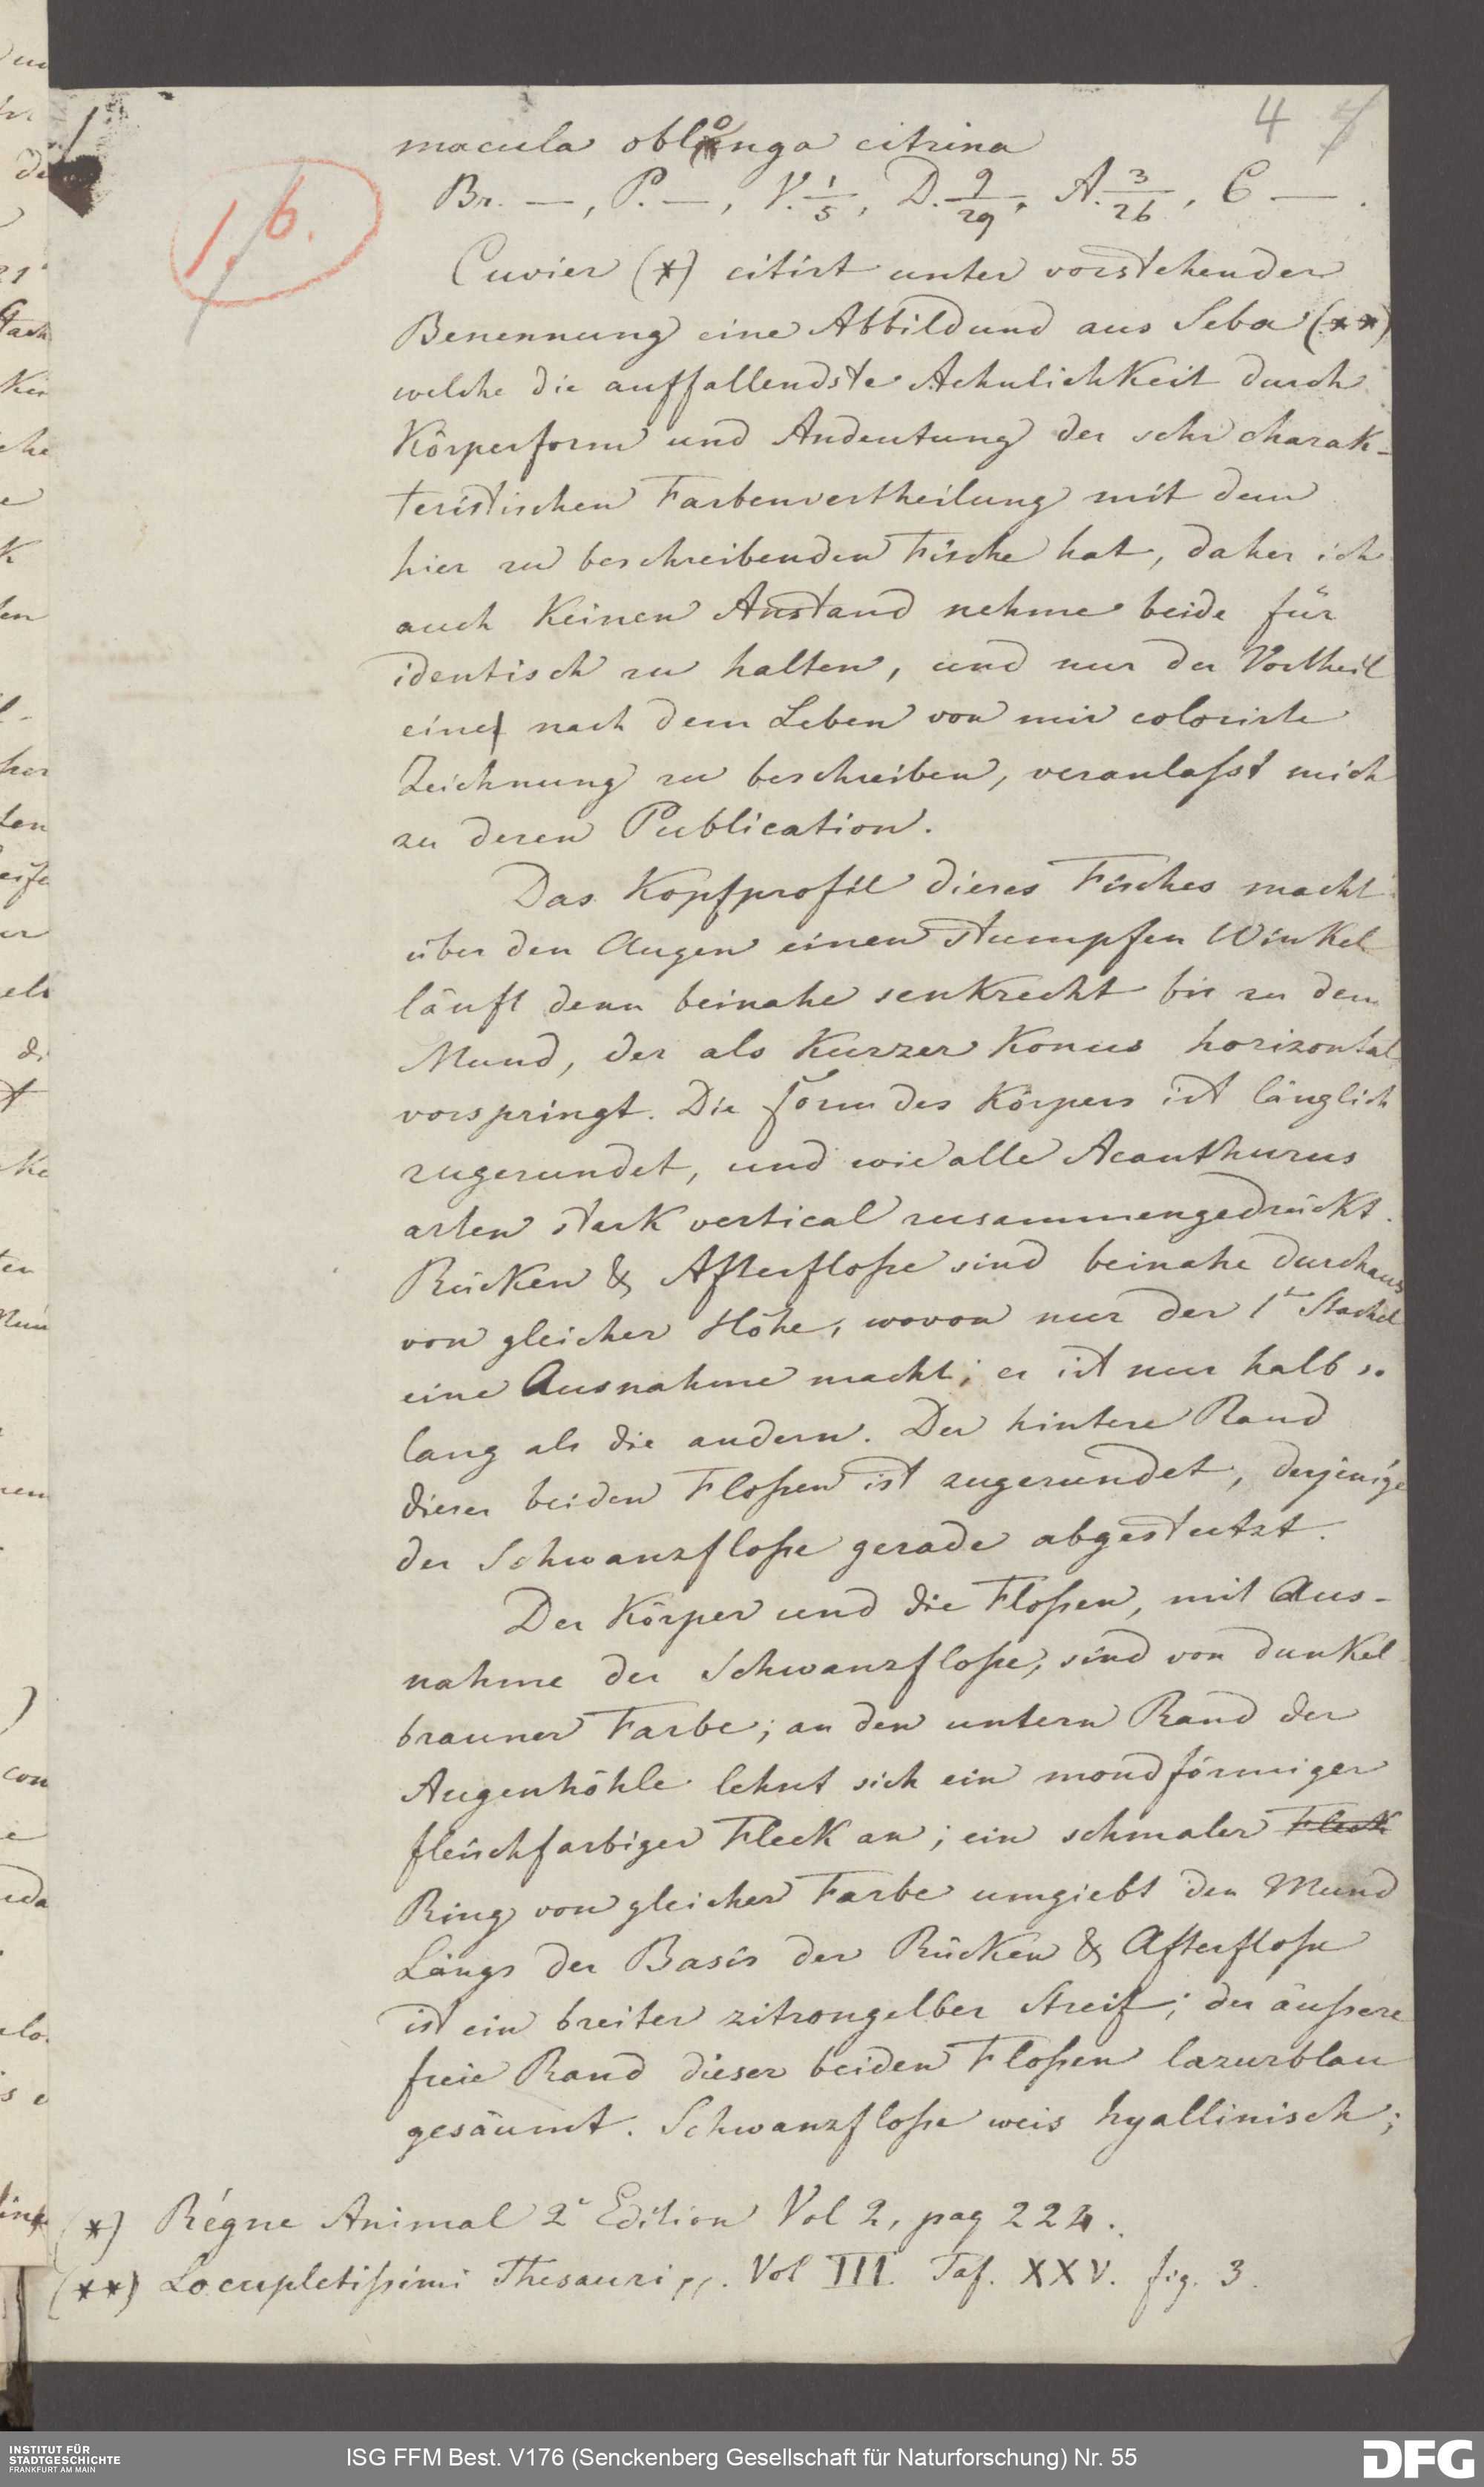 4
1, 6.
macula oblonga citrina
Br. —, P. —, V. 1/5, D. 9/29, A. 3/26, C —.
Cuvier (*) citirt unter vorstehender
Benennung eine Abbildund aus Seba (**)
welche die auffallendste AehnlichKeit durch
Körperform und Andeutung der sehr charak-
teristischen Farbenvertheilung mit dem
hier zu beschreibenden Fische hat, daher ich
auch Keinen Anstand nehme beide für
identisch zu halten, und nur der Vortheil
eine nach dem Leben von mir colorirte
Zeichnung zu beschreiben, veranlaßt mich
zu deren Publication.
Das Kopfprofil dieses Fisches macht
über den Augen einen stumpfen Winkel
läuft denn beinahe senkrecht bis zu dem
Mund, der als Kurzer Konus horizontal
vorspringt. Die Form des Körpers ist länglich
zugerundet, und wie alle Acanthurus
arten stark vertical zusammengedrückt.
Rücken & Afterfloße sind beinahe durchaus
von gleicher Höhe, wovon nur der 1te Stachel
eine Ausnahme macht; er ist nur halb so
lang als die andern. Der hintere Rand
dieser beiden Floßen ist zugerundet, derjenige
der Schwanzfloße gerade abgestutzt.
Der Körper und die Floßen, mit Aus-
nahme der Schwanzfloße, sind von dunkel
brauner Farbe; an den untern Rand der
Augenhöhle lehnt sich ein mondförmiger
fleischfarbiger Fleck an; ein schmaler Fleck
Ring von gleicher Farbe umgiebt den Mund
Längs der Basis der Rücken & Afterfloße
ist ein breiter zitrongelber Streif; der äußere
freie Rand dieser beiden Floßen lazurblau
gesäumt. Schwanzfloße weis hyallinisch;
(*) Régne Animal 2e Edition Vol 2, pag 224.
(**) Locupletißimi Thesauri Vol III. Taf. XXV. fig. 3.
INSTITUT FÜR
STADTGESCHICHTE
FRANKFURT AM MAIN
ISG FFM Best. V176 (Senckenberg Gesellschaft für Naturforschung) Nr. 55
DFG